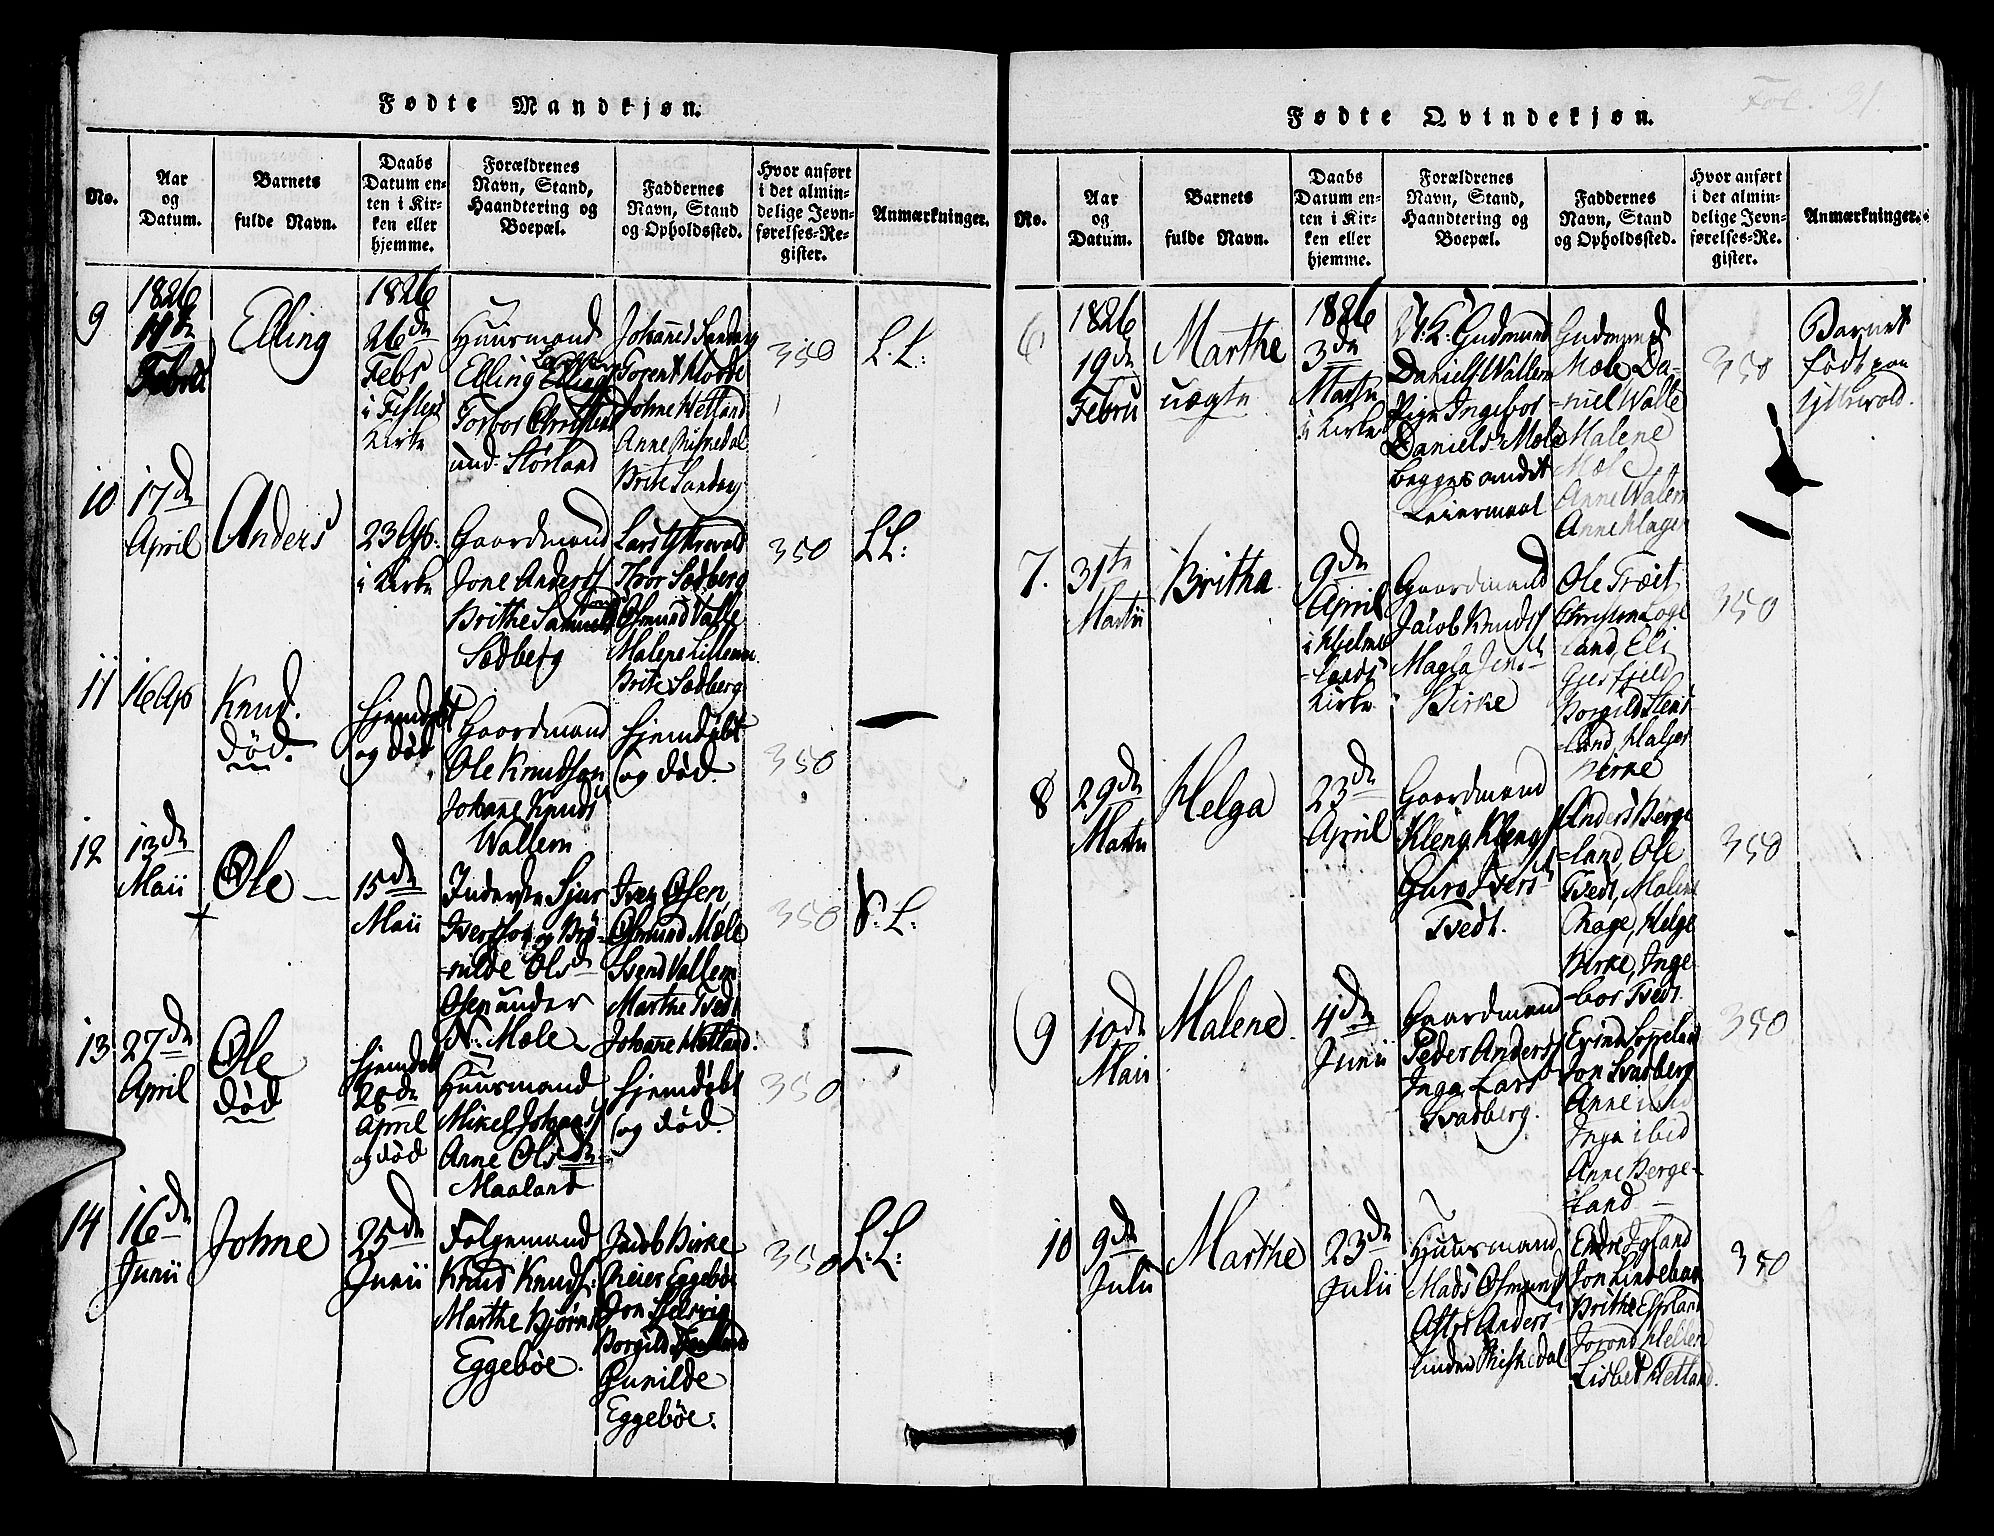 Fødte Mandkjøn.
No.
Aar
og
Datum.
Barnets
fulde Navn.
Daabs
Datum en-
ten i Kir-
ken eller
hjemme.
Forældrenes
Navn, Stand,
Haandtering og
Boepæl.
Faddernes
Navn, Stand
og Opholdssted.
Hvor anført
i det almin-
delige Jevn-
førelses-Re-
gister.
Anmærkninger.
9
1826
11te
Febru
Elling
1826
26de
Febr
i
Kirke
Huusmand
Elling
Torbor
und.
Johanes Sandag
Johne Hetland
Anne Riskedal
Brite Sandag
350
L.L:
10
17de
April
Anders
23 Ap.
i Kirke
Gaardmand
Jone Anders
Brithe Samuels
Sædberg
Lars Ytrevold
Thor Sædberg
Osmund Valle
Malene
Brite Sædberg
350
LL:
11
16 Ap
Knud.
død.
Hjemdøbt
og død
Gaardmand
Ole Knudson
Johane Knuds
Wallem
Hjemdøbt
og død
350
12
13de
Maii
Ole
15de
Maii
Inderste Sjur
Ivertson og Brø-
-nilde Olsd
Osen under
N. Mæle
Iver Osen
Osmund Mæle
Svend Vallem
Marthe Tvedt
Johane Hetland.
350
V: L:
13
27de
April
Ole
død
Hjemdøbt
28de
April
og død
Huusmand
Mikel Johans
Anne Ols
Maaland
Hjemdøbt
og død.
350
14
16de
Junii
Johne
25de
Junii
Følgemand
Knud Knuds:
Marthe Bjørns
Eggebøe.
Jacob Birke
Reier Eggebøe
Jon Helsvig
Borgild
Gunilde
Eggebøe:
350
L: L:
Fol. 31.
Fødte Qvindekjøn.
No.
Aar
og
Datum.
Barnets
fulde Navn.
Daabs
Datum en-
ten i Kir-
ken eller
hjemme.
Forældrenes
Navn, Stand,
Haandtering og
Boepæl.
Faddernes
Navn, Stand
og Opholdssted.
Hvor anført
i det almin-
delige Jevn-
førelses-Re.
gister.
Anmærkninger.
6
1826
19de
Febru
Marthe
uægte
1826
3de
Martii
i Kirke
U.K. Gudmund
Daniels Wallem
Pige Ingebor
Daniels Mæle
begges andet
Leiermaal
Gudmund
Mæle Da-
-niel Walle
Malene
Mæle
Anne Walem
Anne Klagen
350
Barnet
født paa
Ytrevold.
7.
31te
Martii
Britha
9de
April
i Hjelme-
-lands
Kirke
Gaardmand
Jacob Knuds
Magla Jens
Birke
Ole Træet
land, Eli
Gjerfjeld
Borgild Stens-
-land,
Birke
350
8
29de
Martii
Helga
23de
April
Gaardmand
Kleng Kleng
Guro Ivers
Tvedt.
Anders Berge
-land, Ole
Tvedt, Malene
Rage, Helge
Birke, Inge-
-bor Tvedt.
350
9
10de
Maii
Malene
4de
Junii
Gaardmand
Peder Anders
Inga Lars
Svadberg.
Jon Svadberg
Anne ibid
Inga ibid
Anne Berge-
land
350
10
9de
Julii
Marthe
23de
Julii
Huusmand
Mads Osmunds
Astri Anders
under Riskedal
Endre Igland
Jon Lindebak
Brithe
Lisbet Hetland.
350